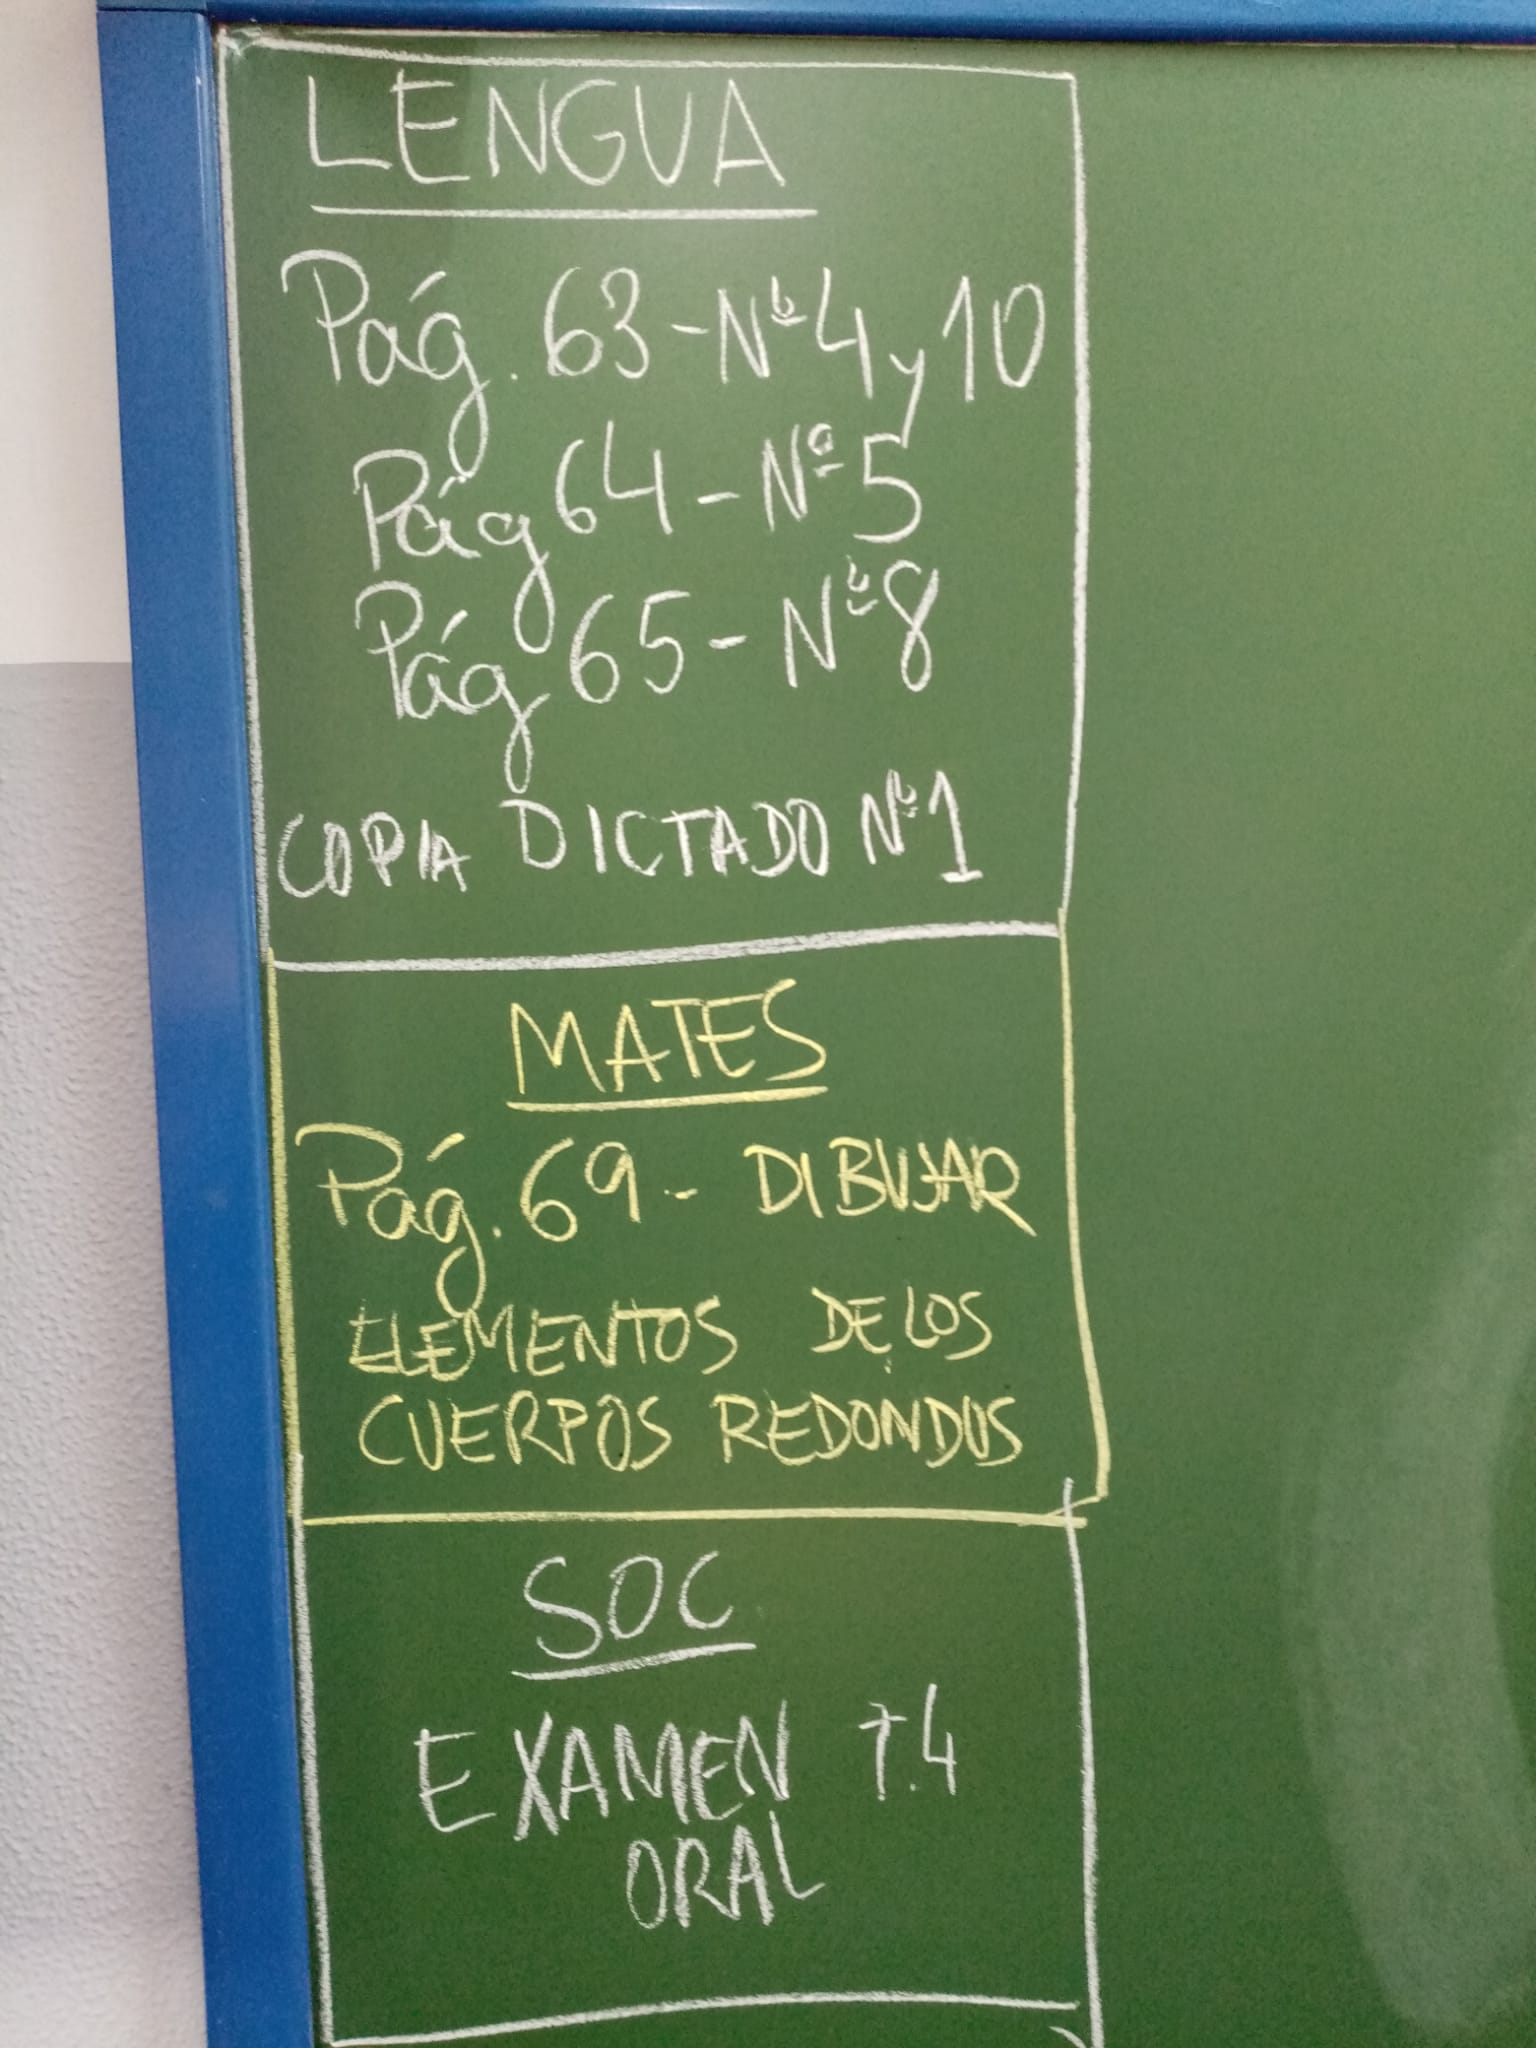 LENGUA
Pág. 63 - Nº 4 y 10
Pág 64 - Nº 5
Pág 65 - Nº 8
COPIA DICTADO Nº 1
MATES
Pág. 69 - DIBUJAR
ELEMENTOS DE LOS
CUERPOS REDONDOS
SOC
EXAMEN T.4
ORAL